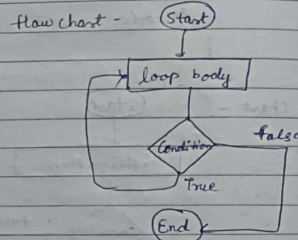 flow chart -
Start
loop body
Condition
false
True
End